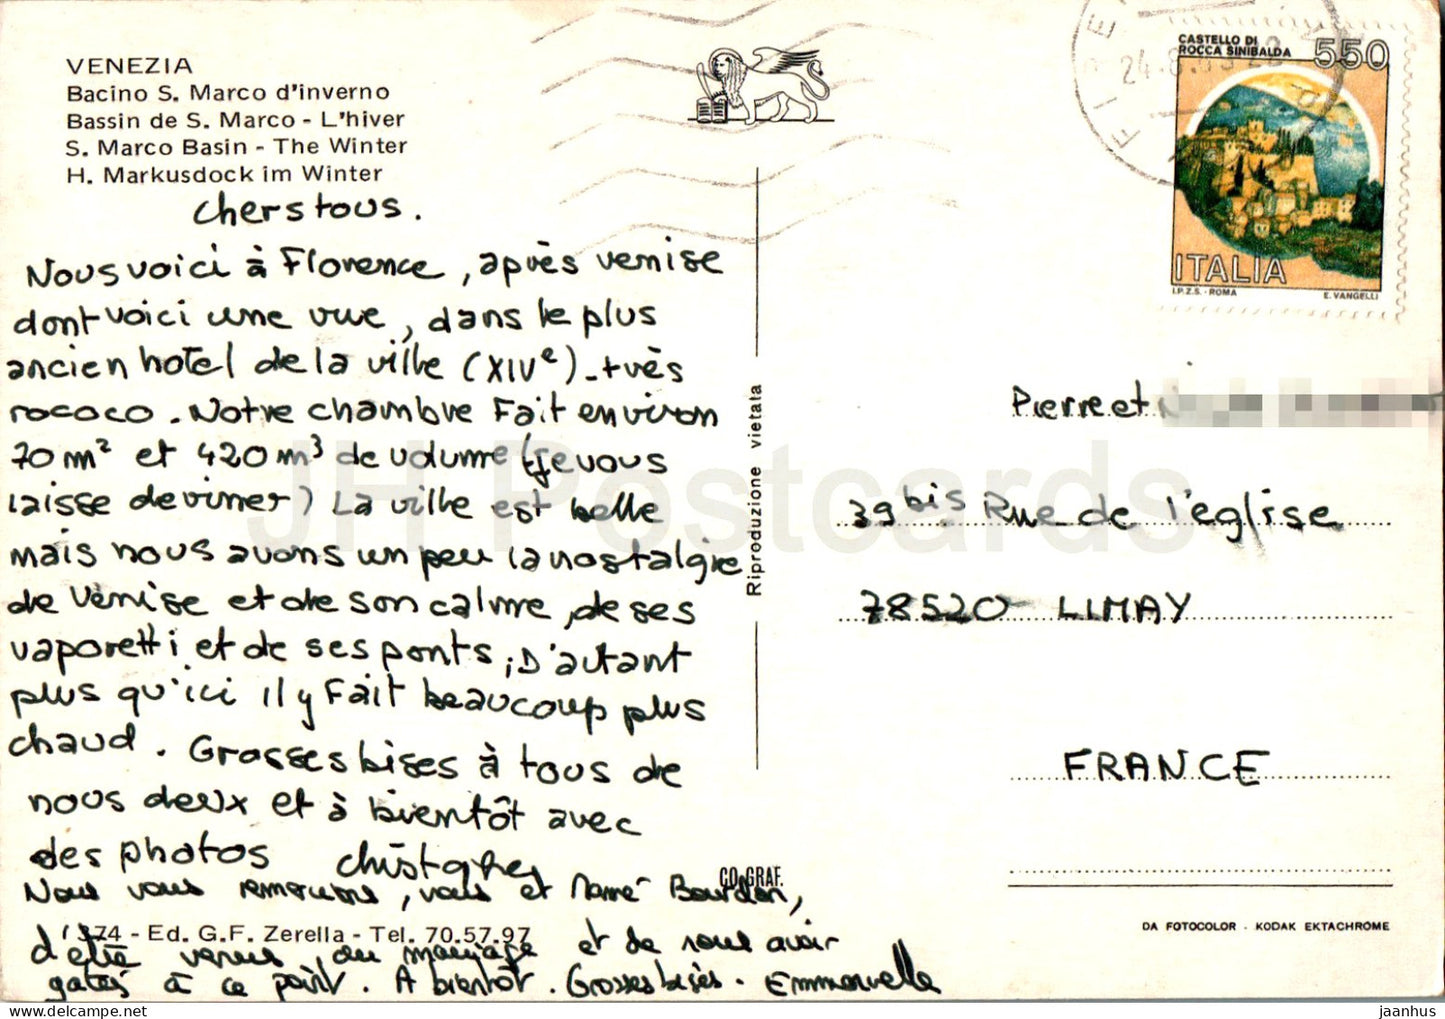 VENEZIA
Bacino S. Marco d'inverno
Bassin de S. Marco - L'hiver
S. Marco Basin - The Winter
H. Markusdock im Winter
Chers tous.
Nous voici à Florence, après venise
dont voici une vue, dans le plus
ancien hotel de la ville (XIVe) - très
rococo. Notre chambre Fait environ
70 m² et 420 m³ de volume (je vous
laisse deviner) La ville est belle
mais nous avons un peu la nostalgie
de Venise et de son calme, de ses
vaporetti et de ses ponts, D'autant
plus qu'ici il y Fait beaucoup plus
chaud. Grosses bises à tous de
nous deux et à bientôt avec
des photos
Nous vous remercions, vous et Bourdon,
d'être venus au mariage et de nous avoir
gatés à ce point. A bientôt. Grosses bises. Emmanuelle
174 - Ed. G.F. Zerella - Tel. 70.57.97
Riproduzione vietata
CO.GRAF.
CASTELLO DI
ROCCA SINIBALDA 550
ITALIA
I.P.Z.S. - ROMA E. VANGELLI
Pierre et
39 bis Rue de l'église
78520 LIMAY
FRANCE
DA FOTOCOLOR - KODAK EKTACHROME
JH Postcards
jaanhus delcampe.net